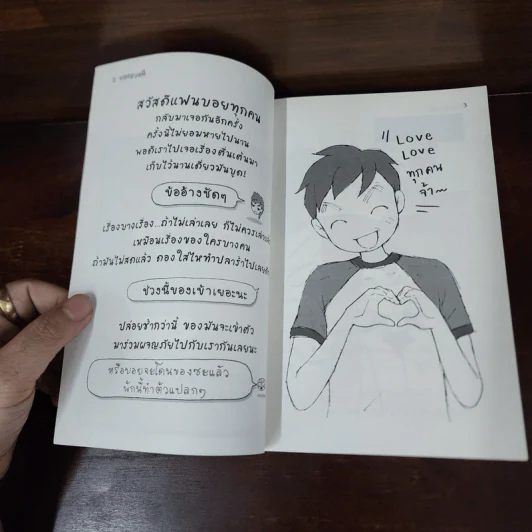 สวัสดีแฟนบอยทุกคน
กลับมาเจอกันอีกครั้ง
ครั้งนี้ไม่ยอมหายไปนาน
พอดีเราไปเจอเรื่องตื่นเต้นมา
เก็บไว้นานเดี๋ยวมันบูด!
ข้ออ้างชัดๆ
เรื่องบางเรื่อง...ถ้าไม่เล่าเลย ก็ไม่ควรเล่า
เหมือนเรื่องของใครบางคน
ถ้ามันไม่สดแล้ว ดองใส่ไหทำปลาร้าไปเลย
ช่วงนี้ของเข้าเยอะนะ
ปล่อยช้ากว่านี้ ของมันจะเข้าตัว
มาร่วมผจญภัยไปกับเรากันเลยนะ
หรือบอยจะโดนของซะแล้ว
พักนี้ทำตัวแปลกๆ
3
Love
Love
ทุกคน
จ้า~